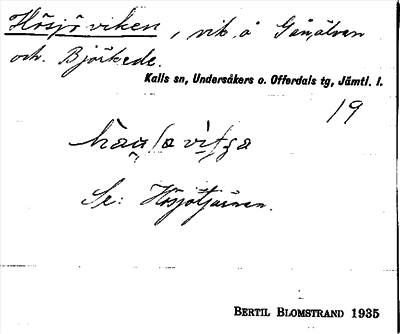 Hösjöviken, vik å Gåsälven
och Björkede.
Kalls sn, Undersåkers o. Offerdals tg, Jämtl. l.
19
Se: Hösjötjärnen.
BERTIL BLOMSTRAND 1935